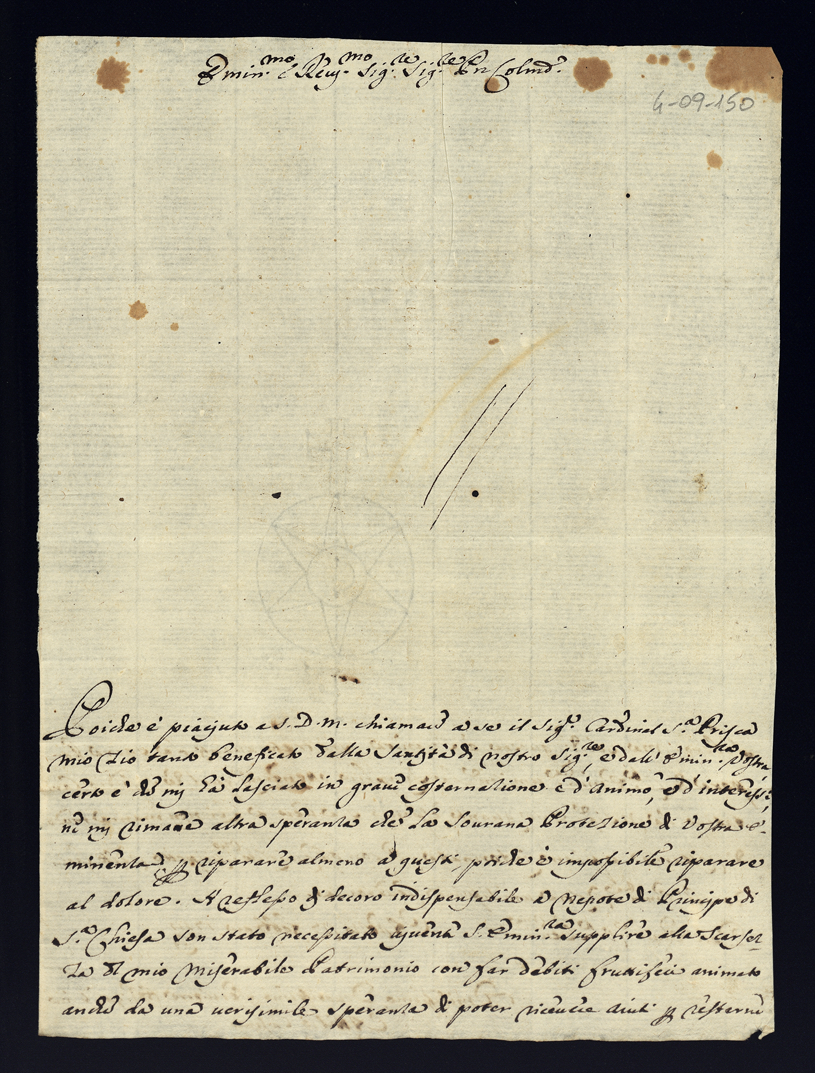 Emin.mo e Reu.mo Sig.re Sig.re Pn Colmo.
4-09-150
Poiche è piaciuto a S. D. M. chiamare a se il Sig.r Cardinal S.a Prisca
mio Zio tanto beneficato dalla Santità di nostro Sig.re, e dall'Emin.za Vostra
certo è che mi hà lasciato in grave costernazione e d'animo, e d'interessi:
nè mi rimane altra speranza che la Sourana Protezione di Vostra E-
minenza p riparare almeno a questi, poiche è impossibile riparare
al dolore. A riflesso di decoro indispensabile a Nepote di Principe di
S.a Chiesa son stato necessitato uiuente S. Emin.za supplire alla scarsez-
za del mio miserabile Patrimonio con far debiti fruttiferi animato
anche da una uerisimile speranza di poter riceuere aiuti p